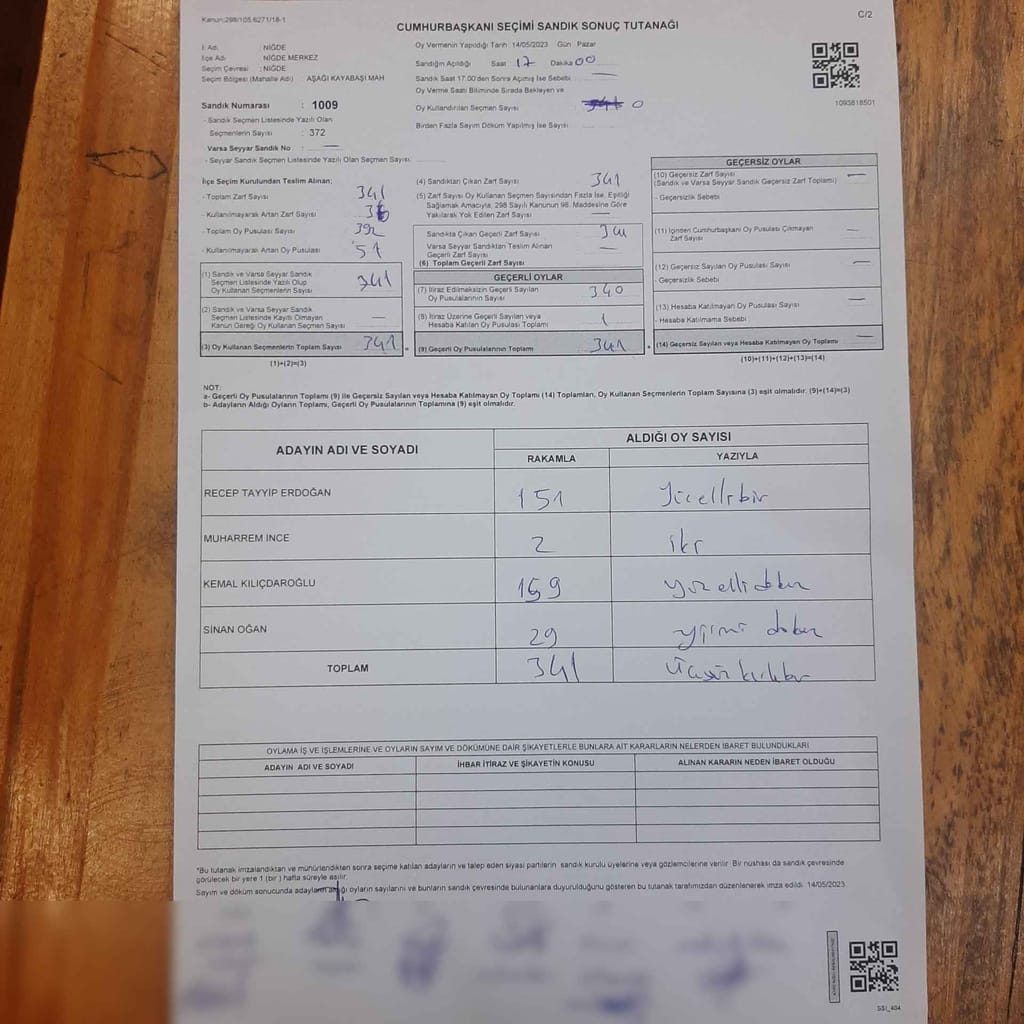 Kanun:298/105.6271/18-1
C/2
CUMHURBAŞKANI SEÇİMİ SANDIK SONUÇ TUTANAĞI
İl Adı : NİĞDE
İlçe Adı : NİĞDE MERKEZ
Seçim Çevresi : NİĞDE
Seçim Bölgesi (Mahalle Adı) : AŞAĞI KAYABAŞI MAH
Sandık Numarası : 1009
- Sandık Seçmen Listesinde Yazılı Olan
Seçmenlerin Sayısı : 372
Varsa Seyyar Sandık No : —
- Seyyar Sandık Seçmen Listesinde Yazılı Olan Seçmen Sayısı
Oy Vermenin Yapıldığı Tarih :14/05/2023 Gün Pazar
Sandığın Açıldığı Saat 17 Dakika 00
Sandık Saat 17.00'den Sonra Açılmış İse Sebebi —
Oy Verme Saati Bitiminde Sırada Bekleyen ve
Oy Kullandırılan Seçmen Sayısı 0
Birden Fazla Sayım Döküm Yapılmış İse Sayısı
1093818501
İlçe Seçim Kurulundan Teslim Alınan;
- Toplam Zarf Sayısı 341
- Kullanılmayarak Artan Zarf Sayısı
- Toplam Oy Pusulası Sayısı 392
- Kullanılmayarak Artan Oy Pusulası 51
(1) Sandık ve Varsa Seyyar Sandık
Seçmen Listesinde Yazılı Olup
Oy Kullanan Seçmenlerin Sayısı 341
(2) Sandık ve Varsa Seyyar Sandık
Seçmen Listesinde Kayıtlı Olmayan
Kanun Gereği Oy Kullanan Seçmen Sayısı —
(3) Oy Kullanan Seçmenlerin Toplam Sayısı 341
(1)+(2)=(3)
(4) Sandıktan Çıkan Zarf Sayısı 341
(5) Zarf Sayısı Oy Kullanan Seçmen Sayısından Fazla İse, Eşitliği
Sağlamak Amacıyla, 298 Sayılı Kanunun 98. Maddesine Göre
Yakılarak Yok Edilen Zarf Sayısı —
Sandıkta Çıkan Geçerli Zarf Sayısı 341
Varsa Seyyar Sandıktan Teslim Alınan
Geçerli Zarf Sayısı —
(6) Toplam Geçerli Zarf Sayısı
GEÇERLİ OYLAR
(7) İtiraz Edilmeksizin Geçerli Sayılan
Oy Pusulalarının Sayısı 340
(8) İtiraz Üzerine Geçerli Sayılan veya
Hesaba Katılan Oy Pusulası Toplamı 1
(9) Geçerli Oy Pusulalarının Toplamı 341
GEÇERSİZ OYLAR
(10) Geçersiz Zarf Sayısı —
(Sandık ve Varsa Seyyar Sandık Geçersiz Zarf Toplamı)
- Geçersizlik Sebebi
(11) İçinden Cumhurbaşkanı Oy Pusulası Çıkmayan —
Zarf Sayısı
(12) Geçersiz Sayılan Oy Pusulası Sayısı —
- Geçersizlik Sebebi
(13) Hesaba Katılmayan Oy Pusulası Sayısı —
- Hesaba Katılmama Sebebi
(14) Geçersiz Sayılan veya Hesaba Katılmayan Oy Toplamı —
(10)+(11)+(12)+(13)=(14)
NOT:
a- Geçerli Oy Pusulalarının Toplamı (9) ile Geçersiz Sayılan veya Hesaba Katılmayan Oy Toplamı (14) Toplamları, Oy Kullanan Seçmenlerin Toplam Sayısına (3) eşit olmalıdır. (9)+(14)=(3)
b- Adayların Aldığı Oyların Toplamı, Geçerli Oy Pusulalarının Toplamına (9) eşit olmalıdır.
ADAYIN ADI VE SOYADI
ALDIĞI OY SAYISI
RAKAMLA YAZIYLA
RECEP TAYYİP ERDOĞAN 151 Yüzellibir
MUHARREM İNCE 2 iki
KEMAL KILIÇDAROĞLU 159 yüzelli dokuz
SİNAN OĞAN 29 yirmi dokuz
TOPLAM 341 Üçyüz kırkbir
OYLAMA İŞ VE İŞLEMLERİNE VE OYLARIN SAYIM VE DÖKÜMÜNE DAİR ŞİKAYETLERLE BUNLARA AİT KARARLARIN NELERDEN İBARET BULUNDUKLARI
ADAYIN ADI VE SOYADI İHBAR İTİRAZ VE ŞİKAYETİN KONUSU ALINAN KARARIN NEDEN İBARET OLDUĞU
*Bu tutanak imzalandıktan ve mühürlendikten sonra seçime katılan adayların ve talep eden siyasi partilerin sandık kurulu üyelerine veya gözlemcilerine verilir. Bir nüshası da sandık çevresinde
görülecek bir yere 1 (bir) hafta süreyle asılır.
Sayım ve döküm sonucunda adayların aldığı oyların sayılarını ve bunların sandık çevresinde bulunanlara duyurulduğunu gösteren bu tutanak tarafımızdan düzenlenerek imza edildi. 14/05/2023
SSI_404